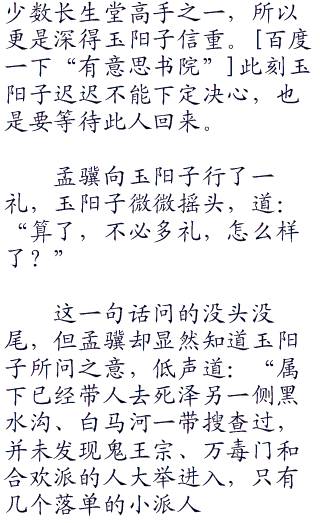 少数长生堂高手之一，所以
更是深得玉阳子信重。[百度
一下“有意思书院”]此刻玉
阳子迟迟不能下定决心，也
是要等待此人回来。
孟骥向玉阳子行了一
礼，玉阳子微微摇头，道：
“算了，不必多礼，怎么样
了？”
这一句话问的没头没
尾，但孟骥却显然知道玉阳
子所问之意，低声道：“属
下已经带人去死泽另一侧黑
水沟、白马河一带搜查过，
并未发现鬼王宗、万毒门和
合欢派的人大举进入，只有
几个落单的小派人